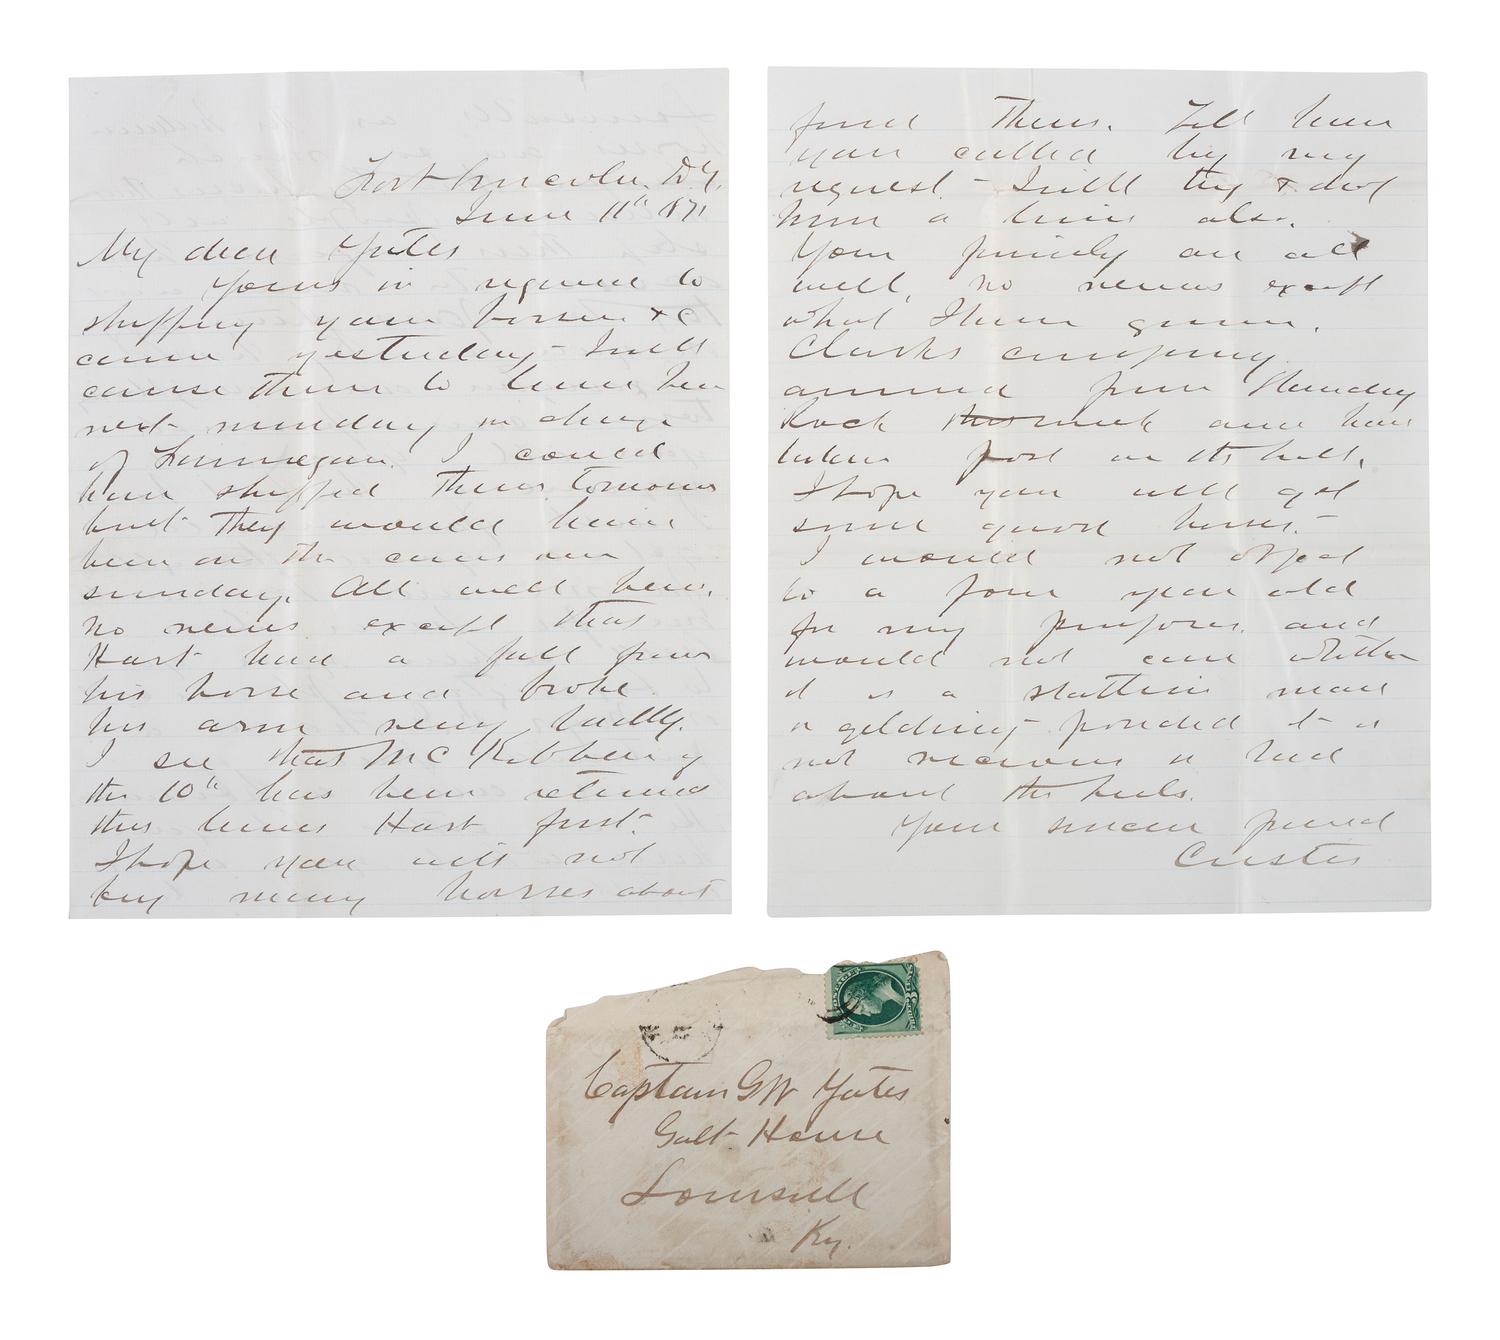 Fort Lincoln. D.T.
June 11th 187
My dear Yates
Yours in regard to
shipping your horses &c
came yesterday - I will
cause them to leave here
next monday in charge
of Finnegan. I could
have shipped them tomorrow
but they would have
been on the cars over
sunday. All well here.
No news except that
Hart had a fall from
his horse and broke
his arm very badly.
I see that McKibben of
the 10th has been retired
this leaves Hart first.
I hope you will not
buy many horses about
find them. Tell him
you called by my
request - I will try & drop
him a line also.
Your family are all
well, no news except
what I have given.
Clarks company
arrived from Standing
Rock this week and have
taken post on the hill.
I hope you will get
some good horses.
I would not object
to a four year old
for my purposes and
would not care whether
it is a stallion mare
or gelding provided it is
not vicious or bad
about the heels.
Your sincere friend
Custer
POSTAGE
Captain GW Yates
Galt House
Louisville
Ky.